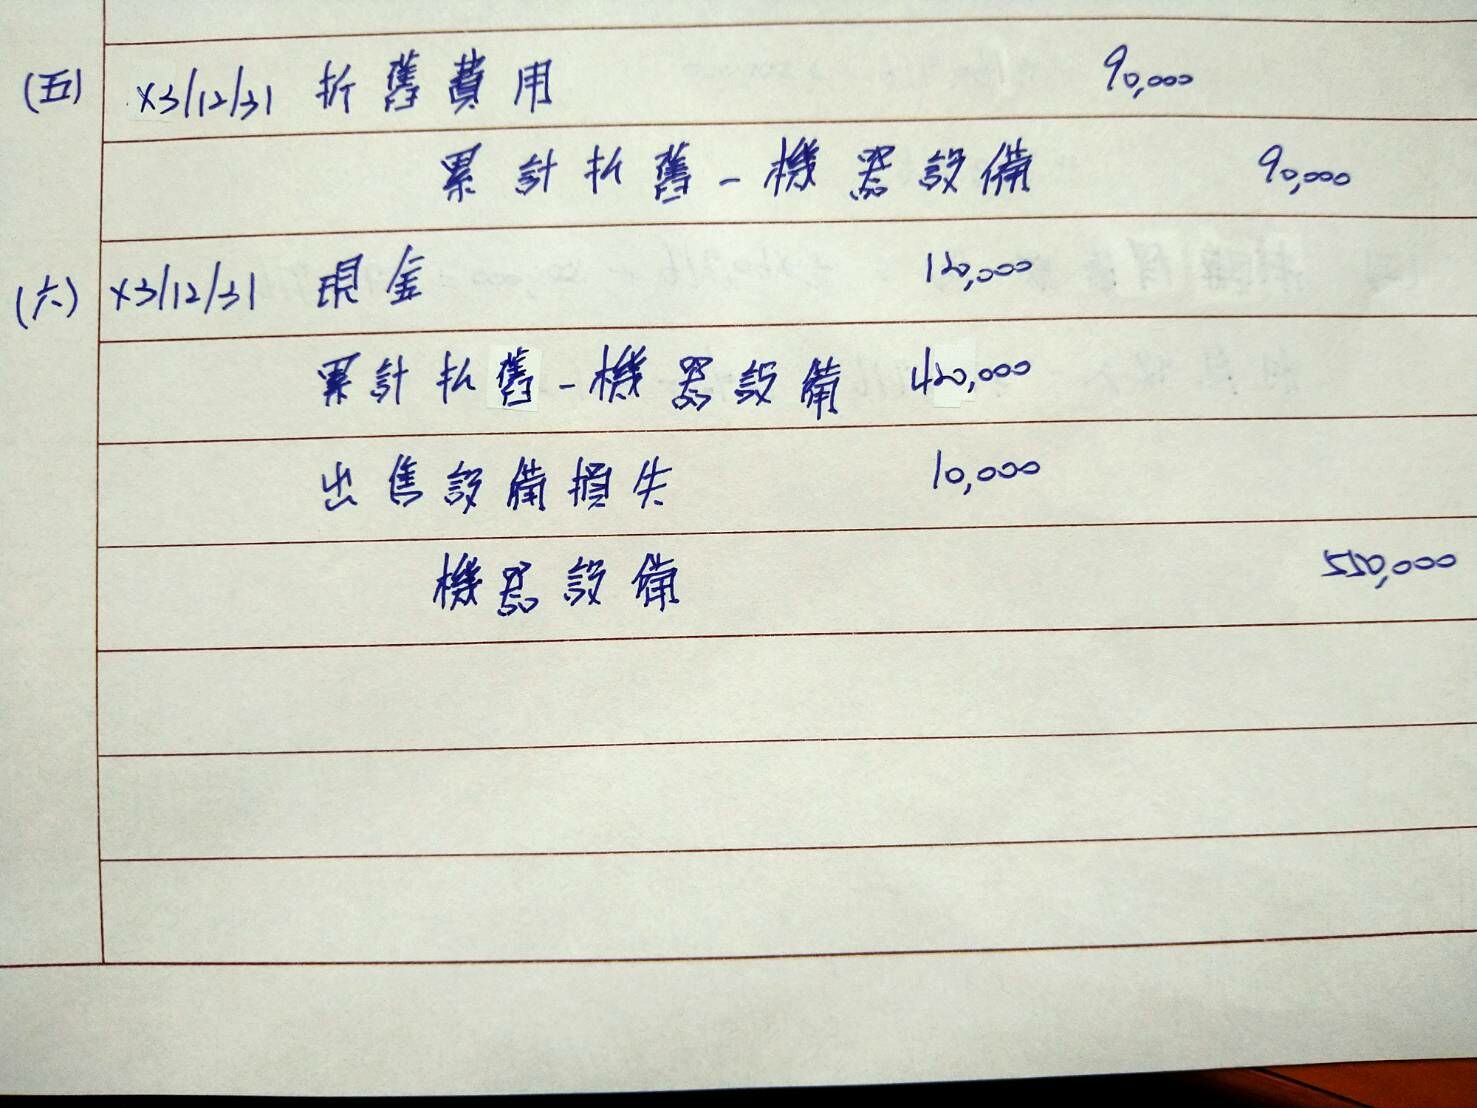 (五) X3/12/31 折舊費用 90,000
累計折舊-機器設備 90,000
(六) X3/12/31 現金 120,000
累計折舊-機器設備 420,000
出售設備損失 10,000
機器設備 550,000